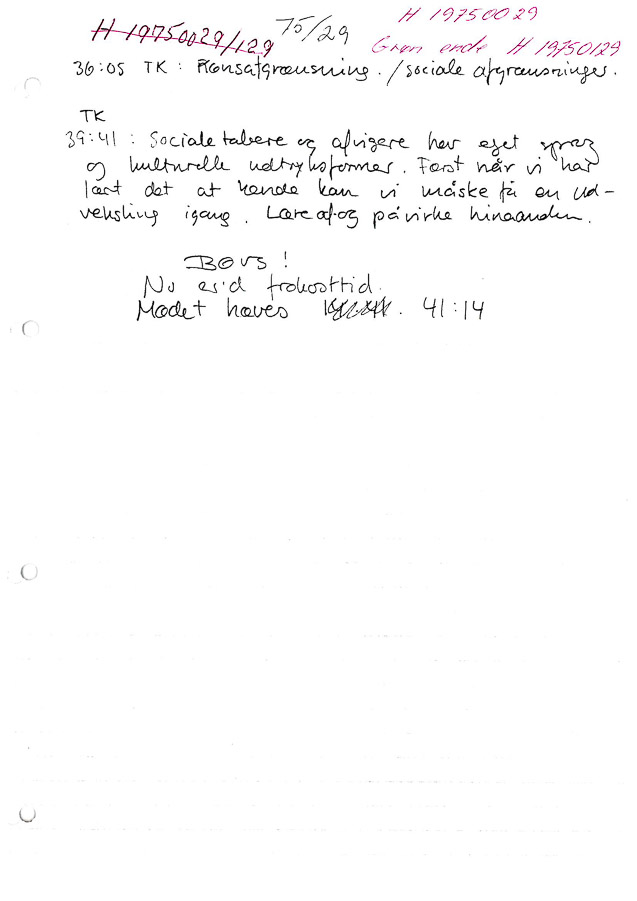 H 19750029/129 75/29 H 19750029
Grøn ende H 19750129
36:05 TK : Kønsafgrænsning. / sociale afgrænsninger.
TK
39:41 : Sociale tabere og afvigere har eget sprog
og kulturelle udtryksformer. Først når vi har
lært det at kende kan vi måske få en ud-
veksling igang. Lære af og påvirke hinanden.
BOVS !
Nu er'd frokosttid.
Mødet hæves . 41:14